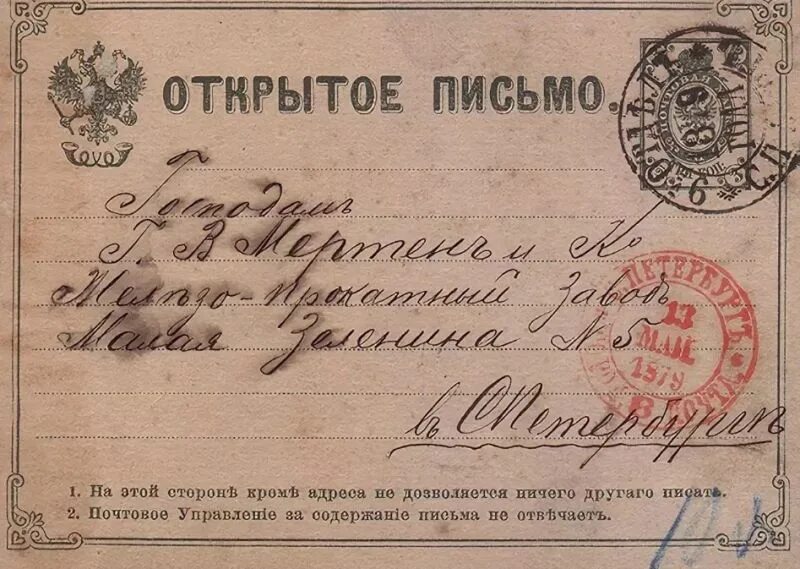 ОТКРЫТОЕ ПИСЬМО.
Господамъ
Г. В Мертенъ и Ко
Желѣзо-прокатный Заводъ
Малая Зеленина N 5
въ СПетербургѣ
ПЕТЕРБУРГЪ
13
МАЙ
1879
1. На этой сторонѣ кромѣ адреса не дозволяется ничего другаго писать.
2. Почтовое Управленіе за содержаніе письма не отвѣчаетъ.